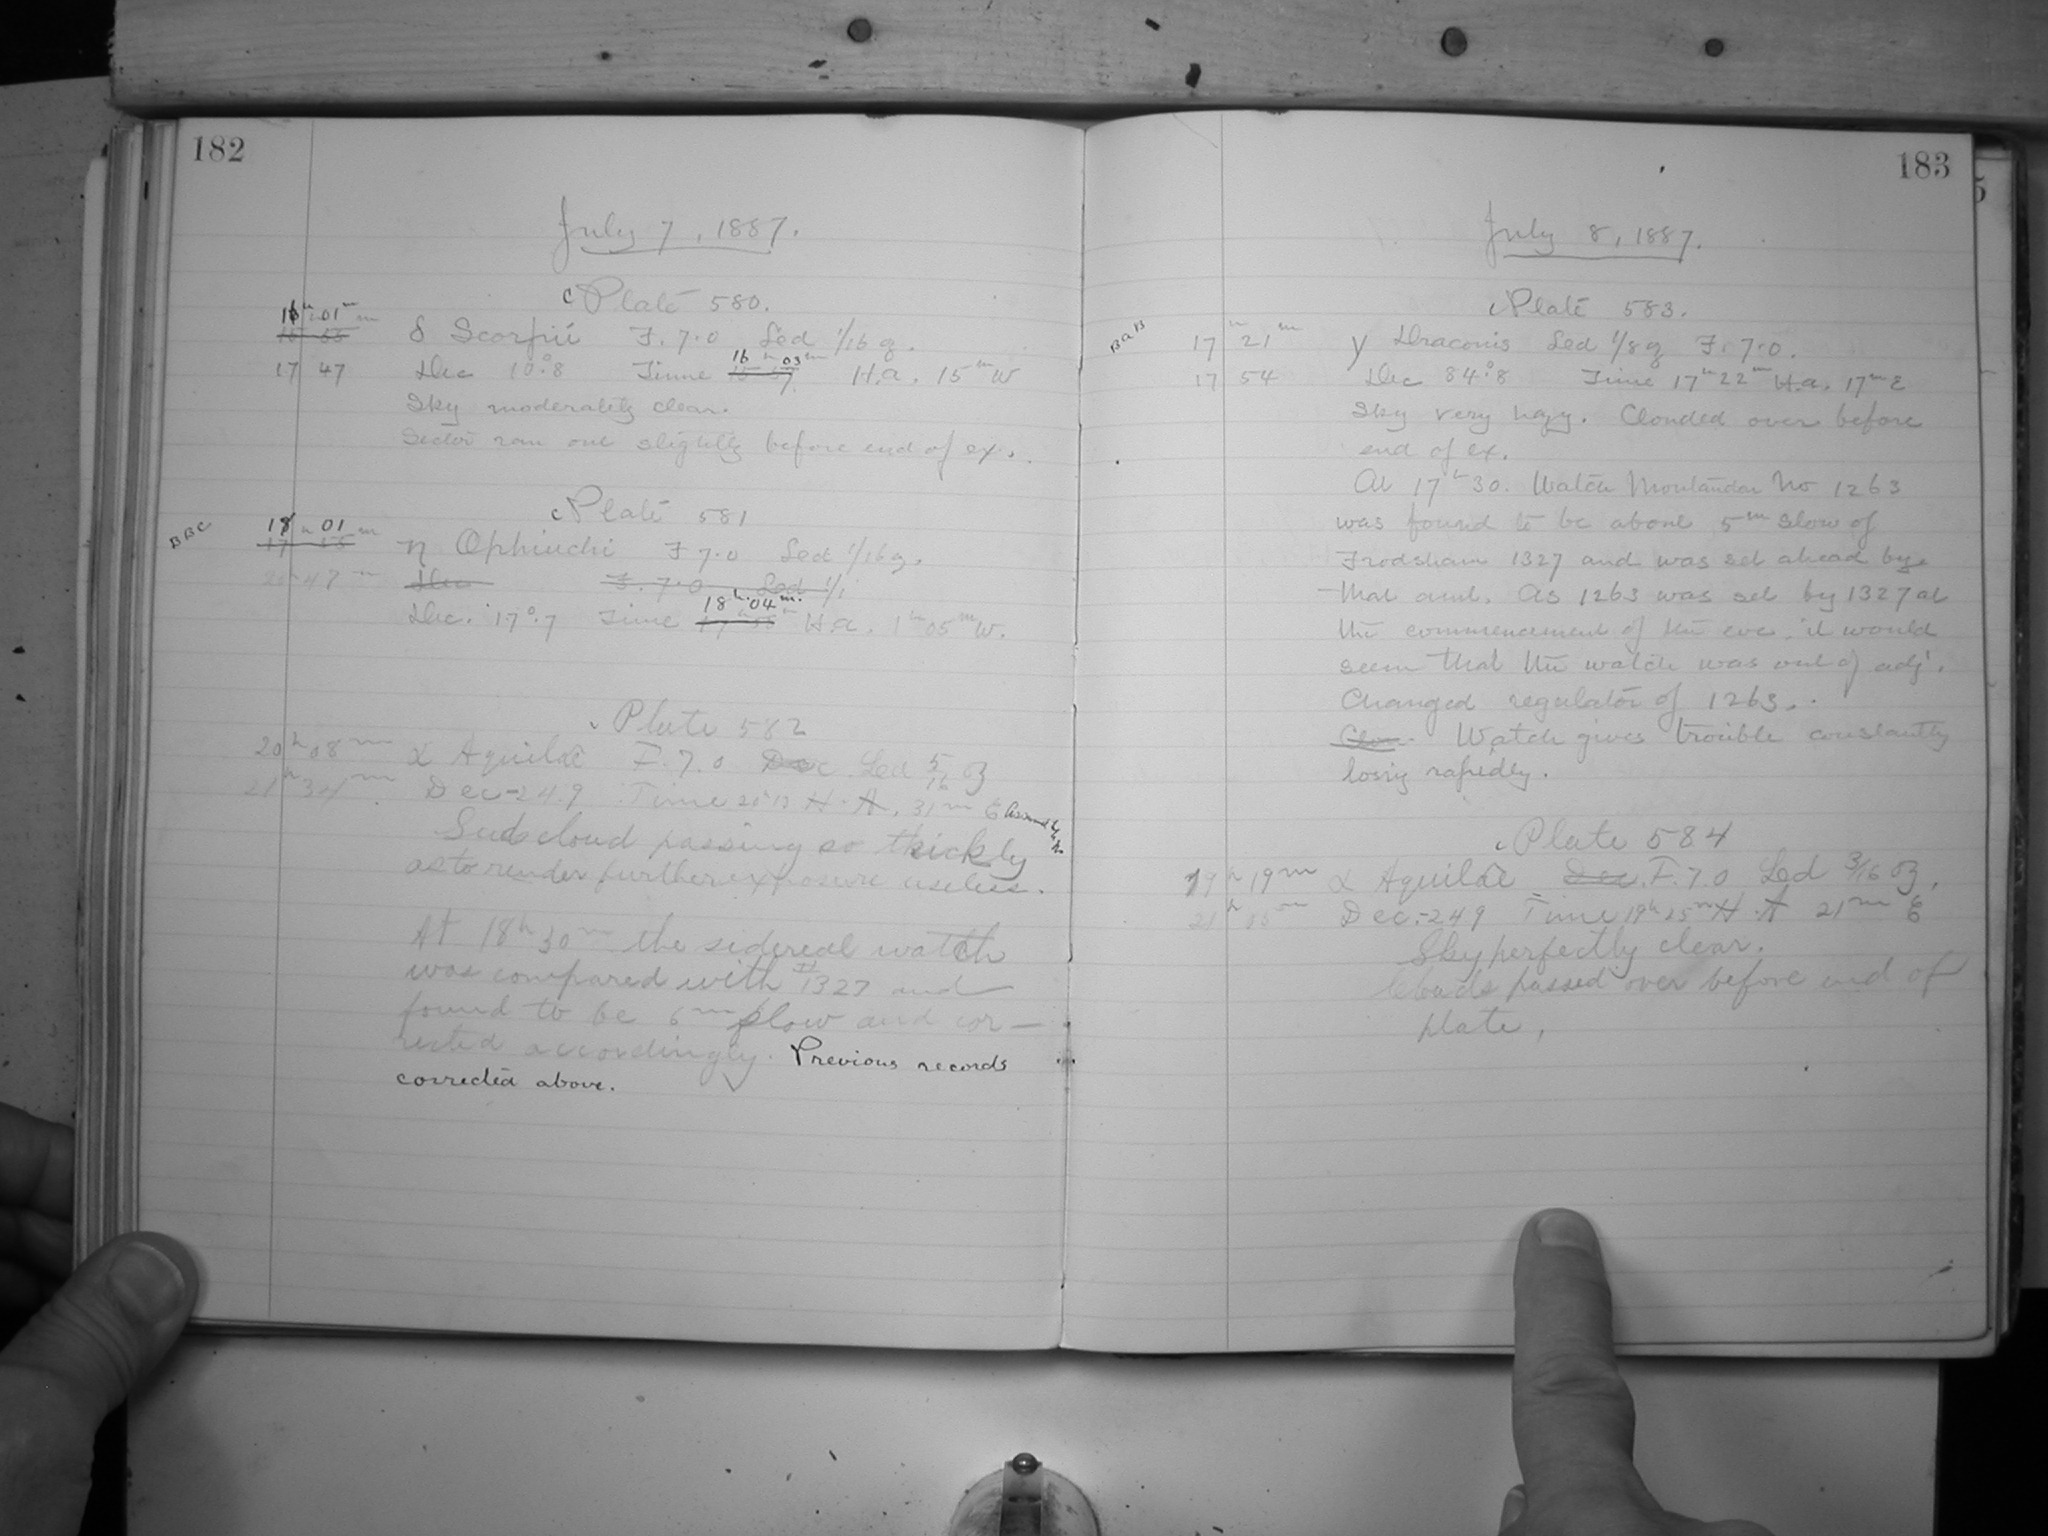 182
July 7, 1887.
c Plate 580.
16h 01m
15 55 δ Scorpii F. 7.0 Sed 1/16 g.
16h 03m
17 47 Dec 10°.8 Time 15 57 H.a. 15m W
Sky moderately clear.
Sector ran out slightly before end of ex.
c Plate 581
BBC
18h 01m
17 55 η Ophiuchi F 7.0 Sed 1/16 g.
47m Dec F. 7.0 Sed 1/
18h. 04m.
Dec. 17°.7 Time 17 58 H.a. 1h 05m W.
Plate 582
20h 08m α Aquilae F. 7.0 Dec Sed 5/16 g
21h 34m Dec -24.9 Time 20 13 H. A. 31m E
cloud passing so thickly
as to render further exposure useless.
At 18h 30m the sidereal watch
was compared with #1327 and
found to be 6m slow and cor-
rected accordingly. Previous records
corrected above.
183
July 8, 1887.
c Plate 583.
BaB
17h 21m γ Draconis Sed 1/8 g F. 7.0.
17 54 Dec 34°.8 Time 17h 22m H.a. 17m E
Sky very hazy. Clouded over before
end of ex.
At 17h 30. Watch Montandon No 1263
was found to be about 5m slow of
Frodsham 1327 and was set ahead by
that amt. As 1263 was set by 1327 at
the commencement of the eve, it would
seem that the watch was out of adj.
Changed regulator of 1263.
Watch gives trouble constantly
losing rapidly.
c Plate 584
19h 19m α Aquilae Dec. F. 7.0 Sed 3/16 g.
21h 35m Dec. -24.9 Time 19h 25m H. A 21m E
Sky perfectly clear.
Clouds passed over before end of
plate.